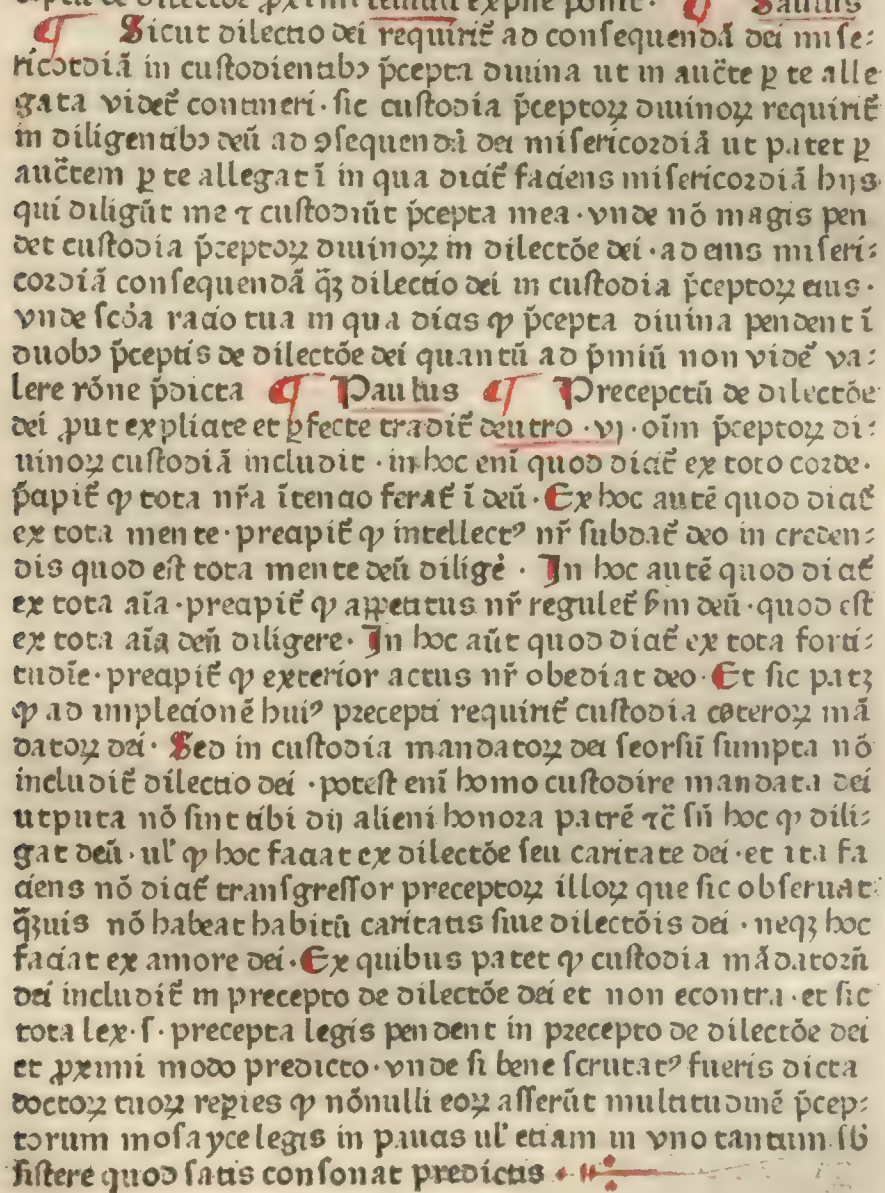 ¶ Saulus
¶ Sicut dilectio dei requirit᷑ ad consequendā dei mise⸗
ricordiā in custodientibꝰ p̄cepta diuina ut in auc̄te ꝑ te alle
gata videt᷑ contineri · sic custodia p̄ceptoꝝ diuinoꝝ requirit᷑
in diligentibꝰ deū ad ꝯsequendā dei misericordiā ut patet ꝑ
auc̄tem ꝑ te allegatī in qua dicit᷑ faciens misericordiā hijs
qui diligūt me ⁊ custodiūt p̄cepta mea · vnde nō magis pen
det custodia p̄ceptoꝝ diuinoꝝ in dilectōe dei · ad eius miseri⸗
cordiā consequendā q̄ꝫ dilectio dei in custodia p̄ceptoꝝ eius ·
vnde sc̄da racio tua in qua dicis ꝙ p̄cepta diuina pendent ī
duobꝰ p̄ceptis de dilectōe dei quantū ad p̄miū non vide᷑ va⸗
lere rōne p̄dicta ¶ Paulus ¶ Preceptū de dilectōe
dei ꝓut explicite et ꝑfecte tradit᷑ deutro · vj · oīm p̄ceptoꝝ di⸗
uinoꝝ custodiā includit · in hoc eni quod dicit᷑ ex toto corde ·
p̄cipit᷑ ꝙ tota nr̄a ītencio ferat᷑ ī deū · Ex hoc autē quod dicit᷑
ex tota mente · precipit᷑ ꝙ intellectꝰ nr̄ subdat᷑ deo in creden⸗
dis quod est tota mente deū diligē · In hoc autē quod dicit᷑
ex tota aīa · precipit᷑ ꝙ appetitus nr̄ regulet᷑ s̄m deū · quod est
ex tota aīa deū diligere · In hoc aūt quod dicit᷑ ex tota forti⸗
tudīe · precipit᷑ ꝙ exterior actus nr̄ obediat deo · Et sic patꝫ
ꝙ ad implecionē huiꝰ precepti requirit᷑ custodia ceteroꝝ mā
datoꝝ dei · Sed in custodia mandatoꝝ dei seorsū sumpta nō
includit᷑ dilectio dei · potest eni homo custodire mandata dei
utputa nō sint tibi dij alieni honora patrē ⁊c̄ sn̄ hoc ꝙ dili⸗
gat deū · ul̓ ꝙ hoc faciat ex dilectōe seu caritate dei · et ita fa
ciens nō dicit᷑ transgressor preceptoꝝ illoꝝ que sic obseruat⸗
q̄ꝫuis nō habeat habitū caritatis siue dilectōis dei · neqꝫ hoc
faciat ex amore dei · Ex quibus patet ꝙ custodia mādatorū
dei includit᷑ in precepto de dilectōe dei et non econtra · et sic
tota lex · s · precepta legis pendent in precepto de dilectōe dei
et ꝓximi modo predicto · vnde si bene scrutatꝰ fueris dicta
doctoꝝ tuoꝝ reꝑies ꝙ nōnulli eoꝝ asserūt multitudinē p̄cep⸗
torum mosayce legis in paucas ul̓ etiam in vno tantum sb̄
sistere quod satis consonat predictis